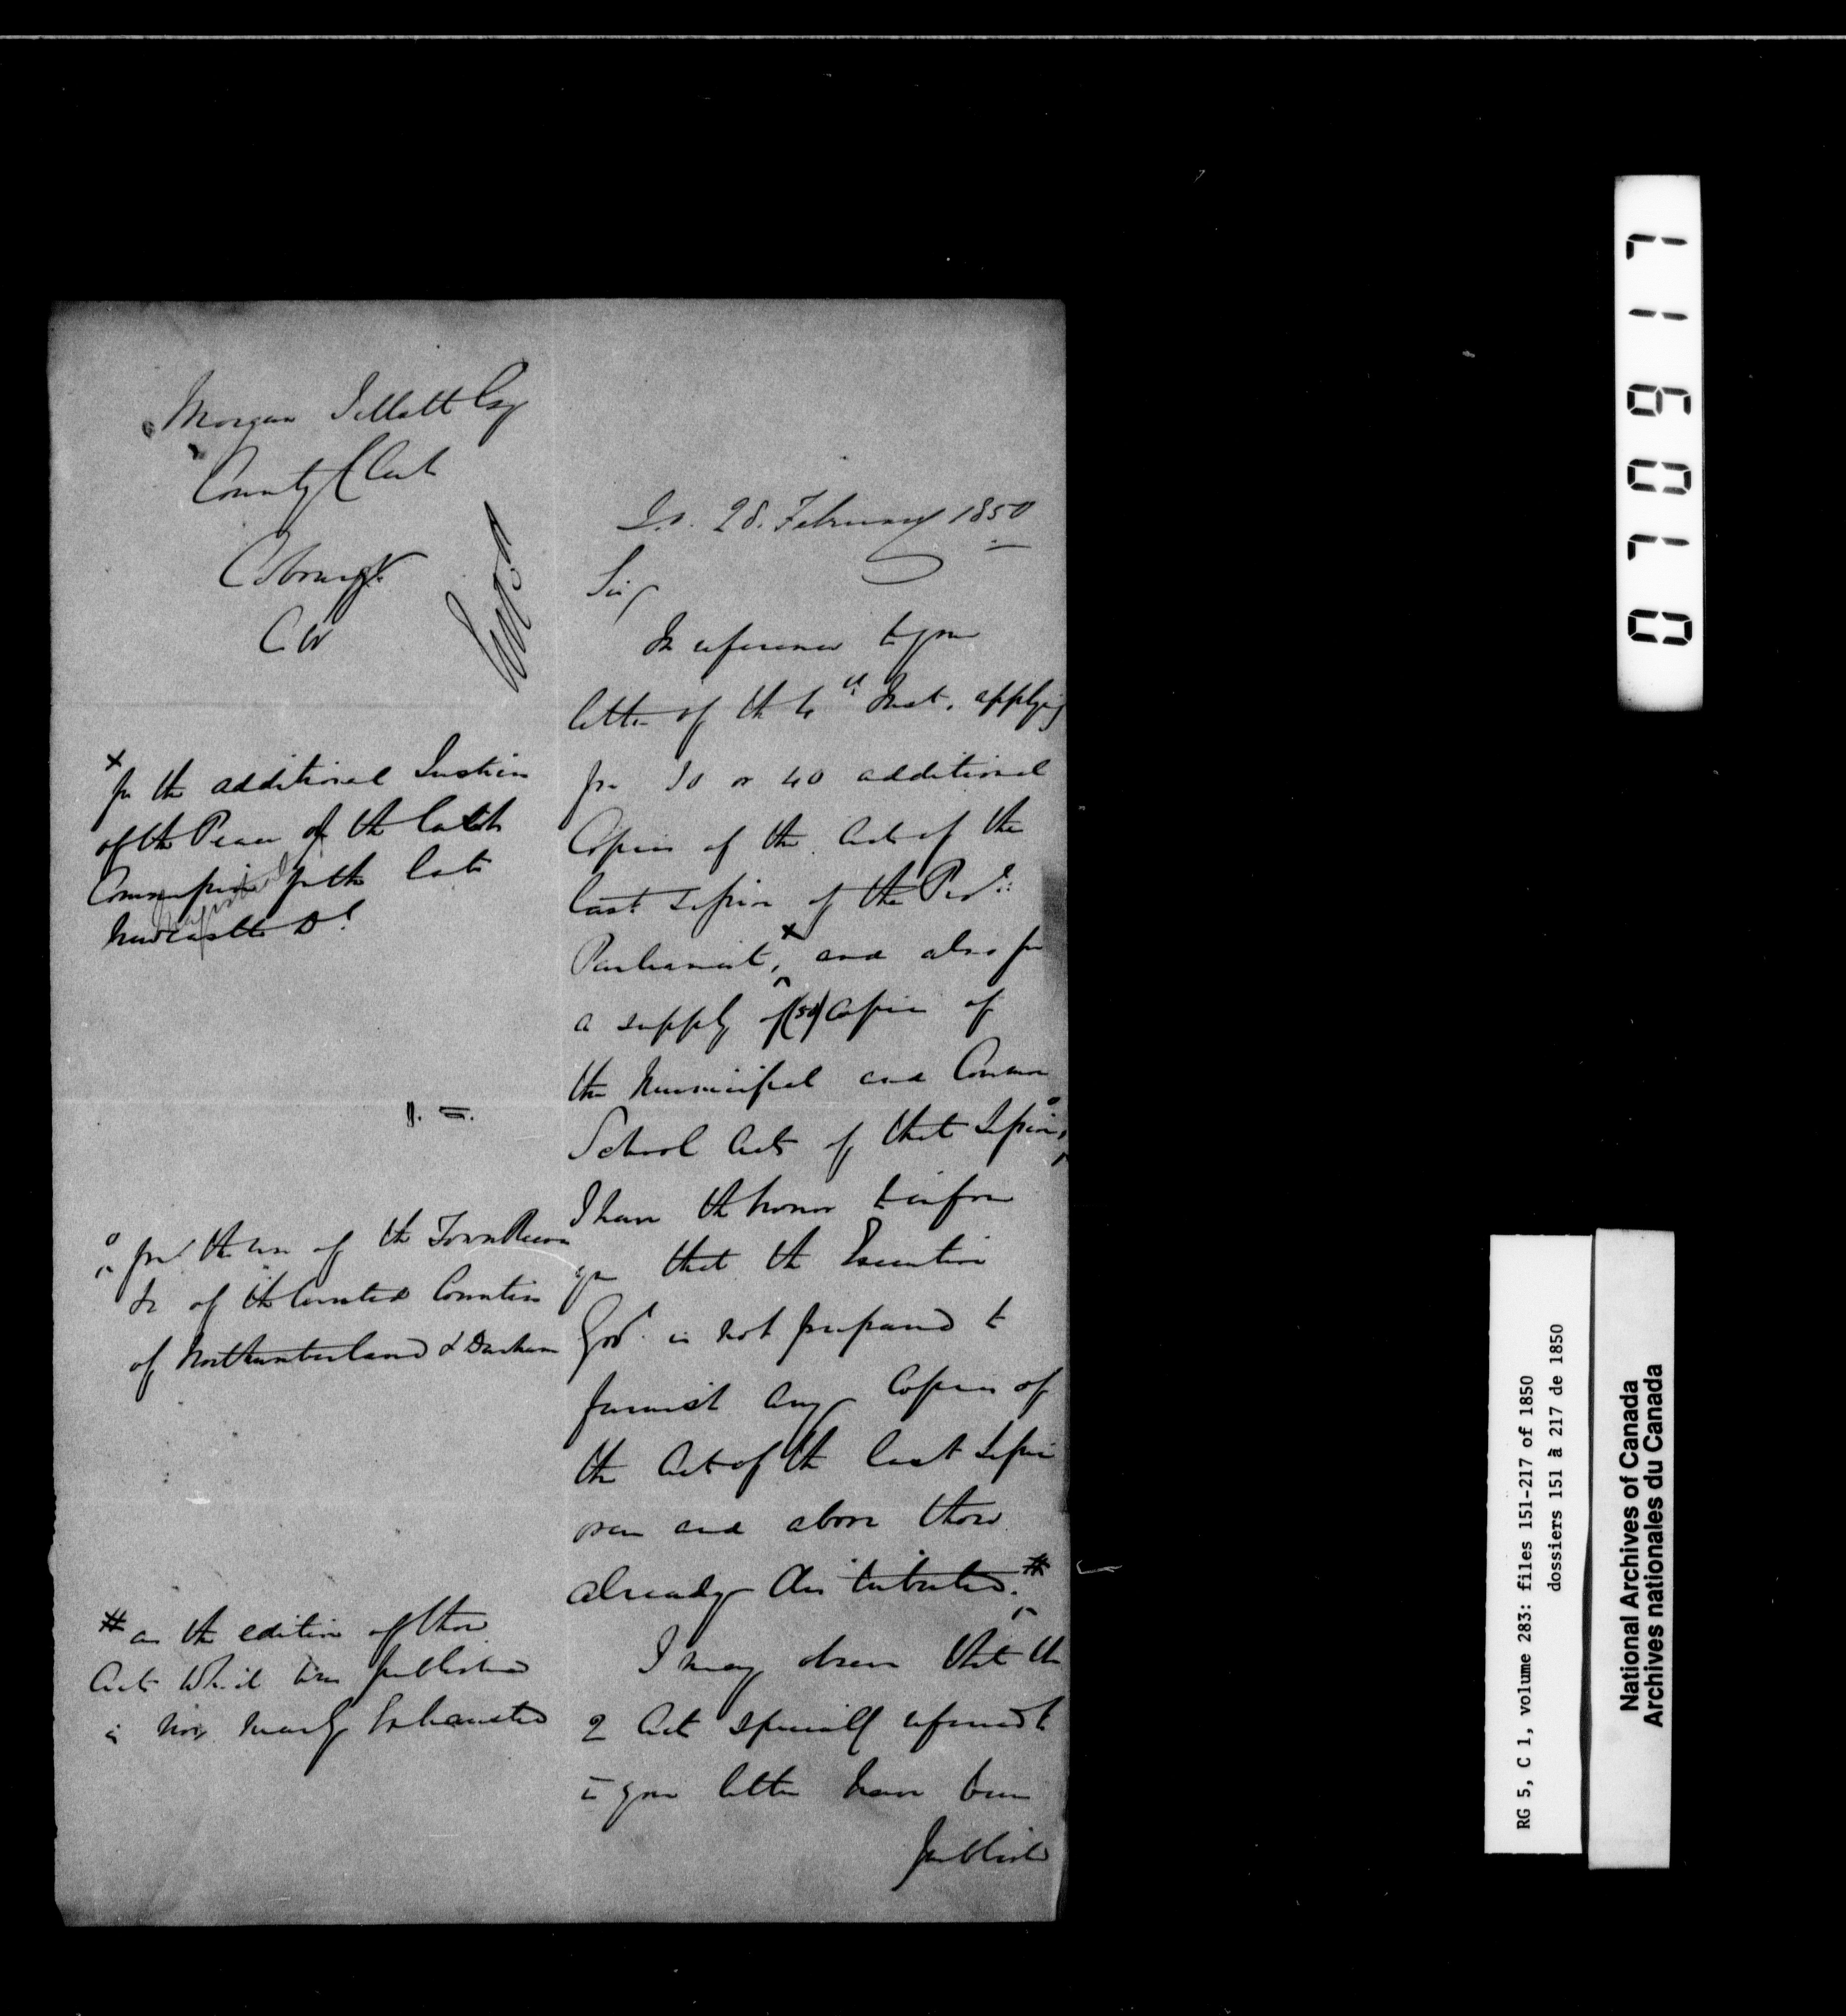 Morgan Jellett Esq
County Clerk
Cobourg
CW
28. February 1850
Sir,
In reference to your
letter of the 4th Inst. applying
for 30 or 40 additional
Copies of the Acts of the
last Session of the Provl:
Parliament,x and also for
a supply of (50) Copies of
the Municipal and Common
School Acts of that Session,o
I have the honor to inform
you that the Executive
Govt. is not prepared to
furnish any Copies of
the Acts of the last Session
over and above those
already distributed.#
I may observe that the
2 Acts specially referred to
in your letter have been
published
x for the additional Justices
of the Peace of the last
Commission for the late
Newcastle Dt
o for the use of the Town Reeves
&c of the United Counties
of Northumberland & Durham
# as the edition of those
Acts which was published
is now nearly Exhausted
071
1
60
RG 5, C 1, volume 283: files 151-217 of 1850
dossiers 151 à 217 de 1850
National Archives of Canada
Archives nationales du Canada